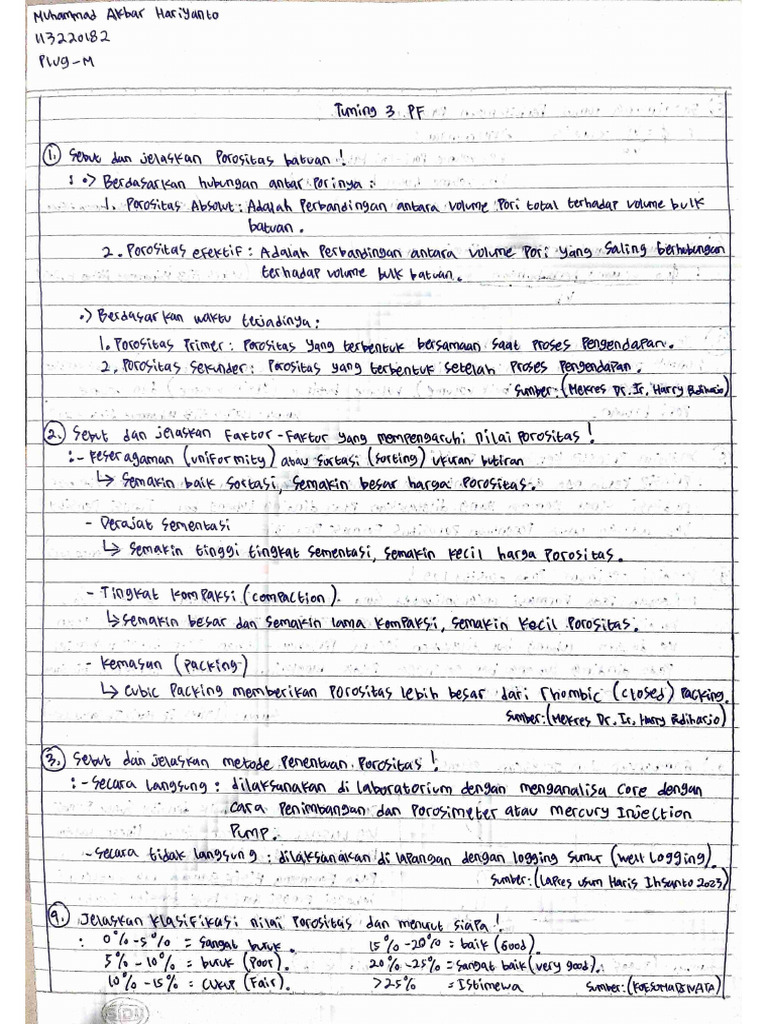 Muhammad Akbar Hariyanto
113220182
Plug-M
Timing 3 PF
1. Sebut dan jelaskan Porositas batuan!
: •> Berdasarkan hubungan antar Porinya:
1. Porositas Absolut: Adalah Perbandingan antara volume Pori total terhadap volume bulk
batuan.
2. Porositas efektif: Adalah Perbandingan antara volume Pori yang saling berhubungan
terhadap volume bulk batuan.
•> Berdasarkan waktu terjadinya:
1. Porositas Primer: Porositas yang terbentuk bersamaan saat Proses Pengendapan.
2. Porositas Sekunder: Porositas yang terbentuk setelah Proses Pengendapan.
Sumber: (Mekres Dr. Ir. Harry Budiharjo)
2. Sebut dan jelaskan Faktor-Faktor yang mempengaruhi nilai Porositas!
:- Keseragaman (uniformity) atau Sortasi (Sorting) ukuran butiran
↳ Semakin baik sortasi, semakin besar harga Porositas.
- Derajat Sementasi
↳ Semakin tinggi tingkat sementasi, Semakin kecil harga Porositas.
- Tingkat Kompaksi (compaction).
↳ Semakin besar dan semakin lama Kompaksi, Semakin kecil Porositas.
- Kemasan (packing)
↳ Cubic Packing memberikan Porositas lebih besar dari Rhombic (closed) Packing.
Sumber: (Mekres Dr. Ir. Harry Budiharjo)
3. Sebut dan jelaskan metode Penentuan Porositas!
:- Secara langsung: dilaksanakan di laboratorium dengan menganalisa core dengan
cara Penimbangan dan Porosimeter atau Mercury Injection
Pump.
- Secara tidak langsung: dilaksanakan di lapangan dengan logging sumur (well logging).
Sumber: (Lapres usum Haris Ihsanto 2023)
4. Jelaskan Klasifikasi nilai Porositas dan menurut siapa!
: 0% - 5% = sangat buruk. 15% - 20% = baik (Good).
5% - 10% = buruk (Poor). 20% - 25% = sangat baik (very good).
10% - 15% = cukup (Fair). >25% = Istimewa Sumber: (KOESOEMADINATA)
SIDU